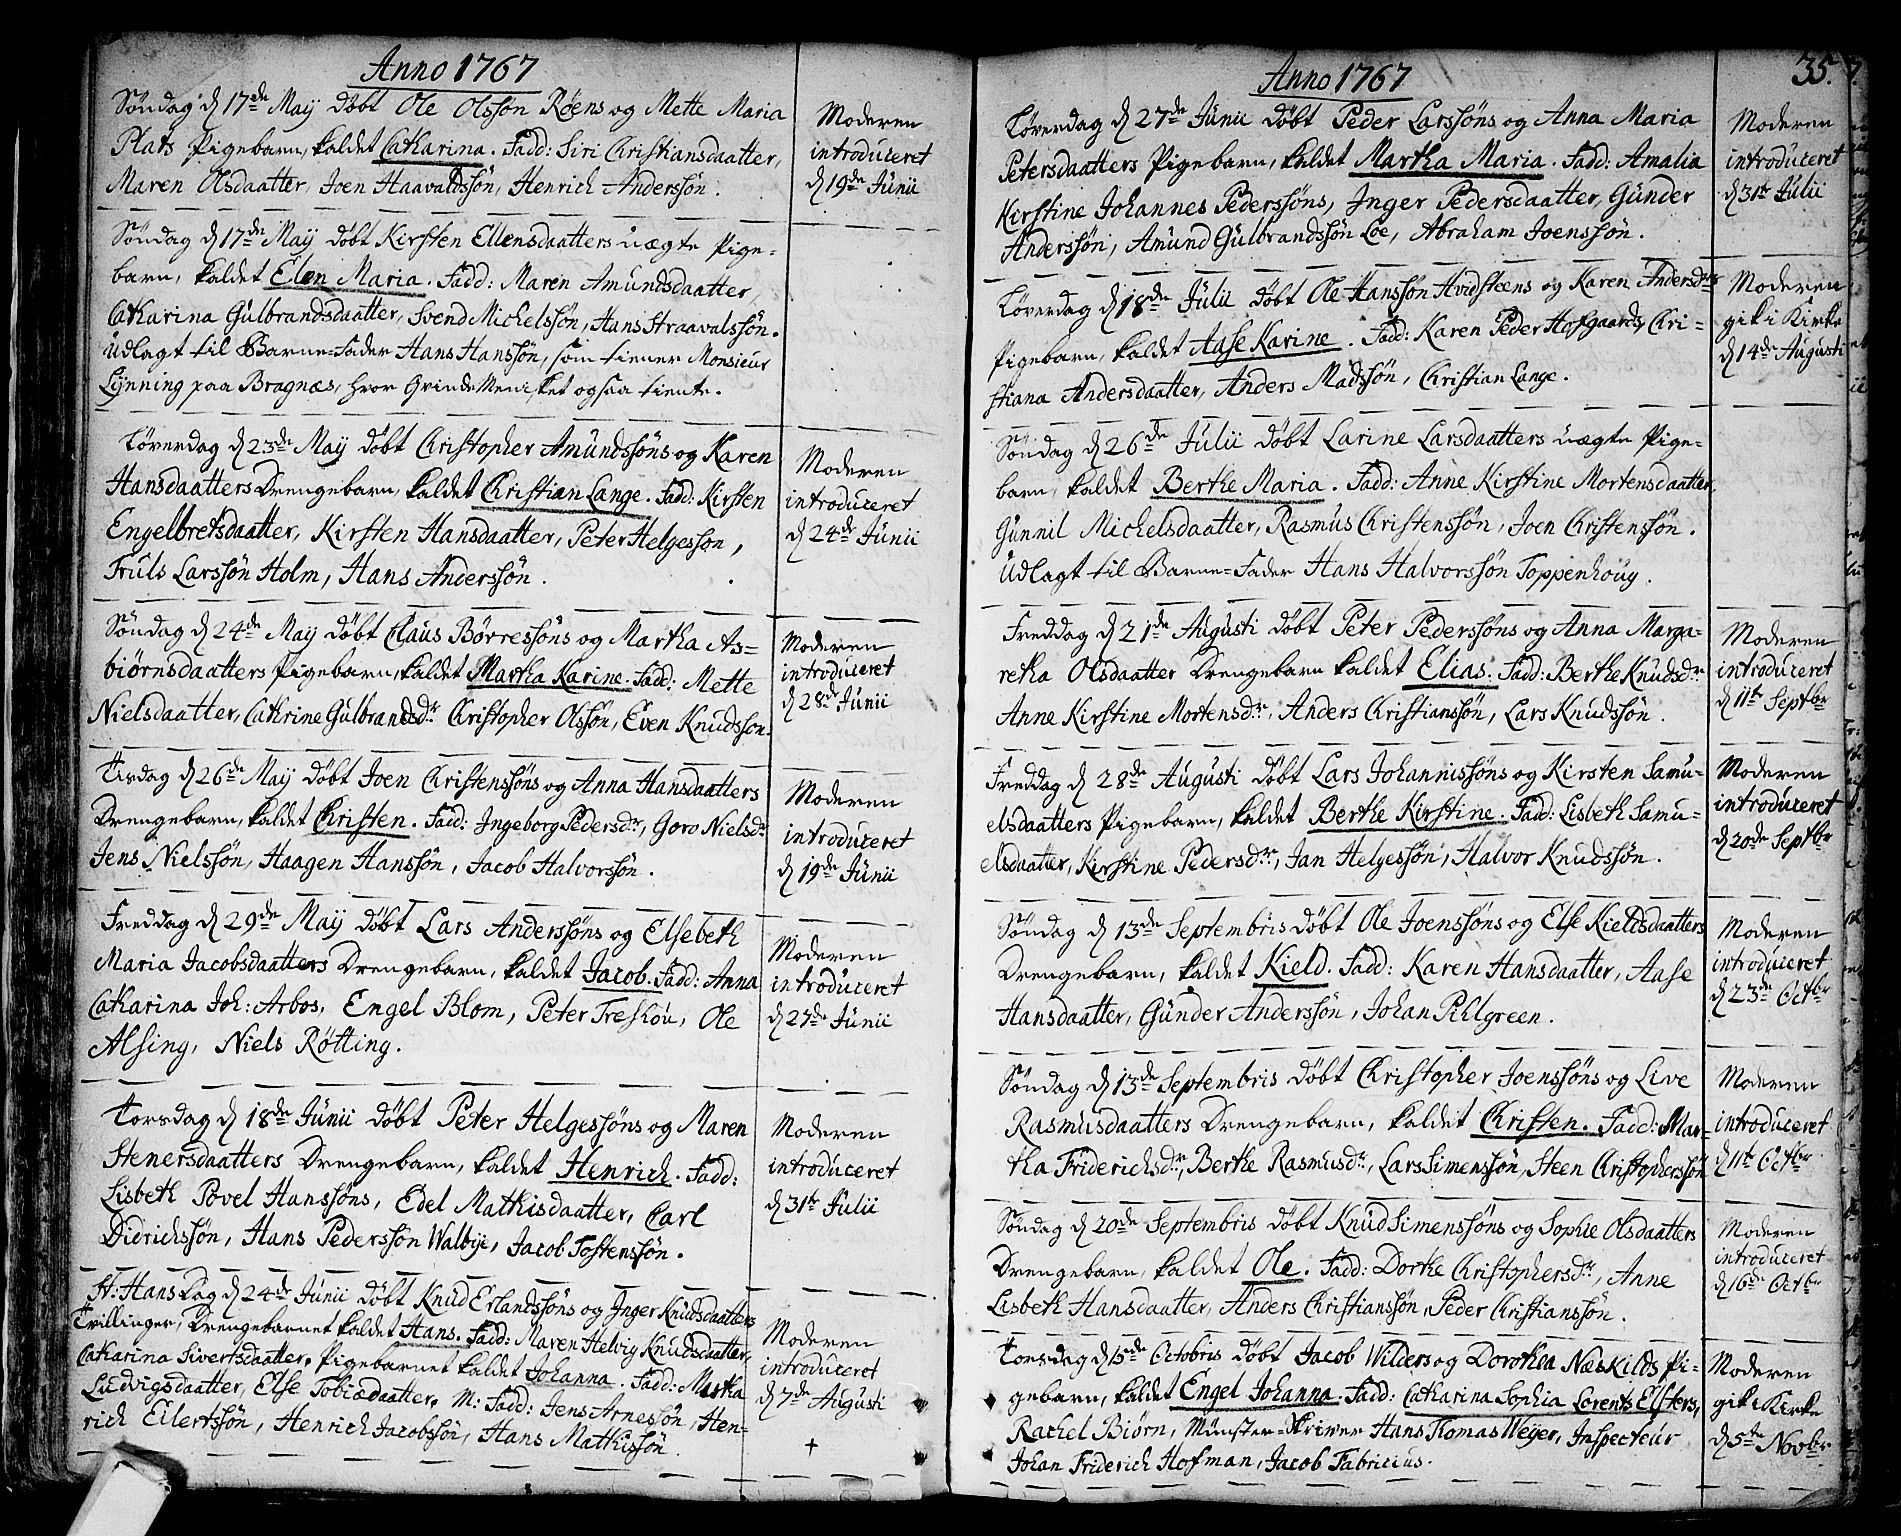 Anno 1767
Søndag d 17de Maÿ døbt Ole Olssøn Røens og Mette Maria
Plats Pigebarn, kaldet Catharina. Fadd: Siri Christiansdaatter,
Maren Olsdaatter, Joen Haavaldssøn, Henrich Anderssøn.
Moderen
introduceret
d 19de Junii
Søndag d 17de Maÿ døbt Kirsten Ellensdaatters uægte Pige-
barn, kaldet Elen Maria. Fadd: Maren Amundsdaatter,
Catharina Gulbrandsdaatter, Svend Michelssøn, Hans Straavalssøn.
Udlagt til Barne-Fader Hans Hanssøn, som tiener Monsieur
Lÿnning paa Bragnæs, hvor Qvindemennisket ogsaa tiente.
Løverdag d 23de Maÿ døbt Christopher Amundssøns og Karen
Hansdaatters Drengebarn, kaldet Christian Lange. Fadd: Kirsten
Engelbretsdaatter, Kirsten Hansdaatter, Peter Helgessøn,
Truls Larssøn Holm, Hans Anderssøn.
Moderen
introduceret
d 24de Junii
Søndag d 24de Maÿ døbt Claus Børressøns og Martha As-
biørnsdaatters Pigebarn, kaldet Martha Karine. Fadd: Mette
Nielsdaatter, Cathrine Gulbrandsdr Christopher Olssøn, Even Knudssøn.
Moderen
introduceret
d 28de Junii
Tirsdag d 26de Maÿ døbt Joen Christenssøns og Anna Hansdaatters
Drengebarn, kaldet Christen. Fadd: Ingeborg Pedersdr, Goro Nielsdr
Jens Nielssøn, Haagen Hanssøn, Jacob Halvorssøn.
Moderen
introduceret
d 19de Junii
Freddag d 29de Maÿ døbt Lars Anderssøns og Elsebeth
Maria Jacobsdaatters Drengebarn, kaldet Jacob. Fadd: Anna
Catharina Joh: Arbos, Engel Blom, Peter Treskou, Ole
Alsing, Niels Røtting.
Moderen
introduceret
d 27de Junii
Torsdag d 18de Junii døbt Peter Helgessøns og Maren
Stenersdaatters Drengebarn, kaldet Henrich. Fadd:
Lisbeth Povel Hanssøns, Edel Mathisdaatter, Carl
Didrichssøn, Hans Pederssøn Walbÿe, Jacob Tostenssøn.
Moderen
introduceret
d 31te Julii
St: Hans Dag d 24de Junii døbt Knud Erlandssøns og Inger Knudsdaatters
Tvillinger, Drengebarnet kaldet Hans. Fadd: Maren Helvig Knudsdaatter,
Catharina Sivertsdaatter. Pigebarnet kaldet Johanna. Fadd: Martha
Ludvigsdaatter, Else Tobiædaatter. M: Fadd: Jens Arnessøn, Hen-
rich Eilertssøn, Henrich Jacobssøn, Hans Mathissøn.
Moderen
introduceret
d 7de Augusti
+
Anno 1767
35.
Løverdag d 27de Junii døbt Peder Larssøns og Anna Maria
Petersdaatters Pigebarn, kaldet Martha Maria. Fadd: Amalia
Kirstine Johannes Pederssøns, Inger Pedersdaatter, Gunder
Anderssøn, Amund Gulbrandssøn Loe, Abraham Joenssøn.
Moderen
introduceret
d 31te Julii
Løverdag d 18de Julii døbt Ole Hanssøn Hvidsteens og Karen Andersdrs
Pigebarn, kaldet Aase Karine. Fadd: Karen Peder Hofgaards, Chri-
stiana Andersdaatter, Anders Madssøn, Christian Lange.
Moderen
gik i Kirke
d 14de Augusti
Søndag d 26de Julii døbt Larine Larsdaatters uægte Pige-
barn, kaldet Berthe Maria. Fadd: Anne Kirstine Mortensdaatter,
Gunnil Michelsdaatter, Rasmus Christenssøn, Joen Christenssøn.
Udlagt til Barne-Fader Hans Halvorssøn Toppenhoug.
Freddag d 21de Augusti døbt Peter Pederssøns og Anna Marga-
retha Olsdaatter Drengebarn kaldet Elias. Fadd: Berthe Knudsdr
Anne Kirstine Mortensdr, Anders Christianssøn, Lars Knudssøn.
Moderen
introduceret
d 11te Septbr
Freddag d 28de Augusti døbt Lars Johannissøns og Kirsten Samu-
elsdaatters Pigebarn, kaldet Berthe Kirstine. Fadd: Lisbeth Samu-
elsdaatter, Kirstine Pedersdr, Jan Helgessøn, Halvor Knudssøn.
Moderen
introduceret
d 20de Septbr
Søndag d 13de Septembris døbt Ole Joenssøns og Else Kieldsdaatters
Drengebarn, kaldet Kield. Fadd: Karen Hansdaatter, Aase
Hansdaatter, Gunder Anderssøn, Johan Pihlgreen.
Moderen
introduceret
d 23de Octbr
Søndag d 13de Septembris døbt Christopher Joenssøns og Live
Rasmusdaatters Drengebarn, kaldet Christen. Fadd: Mar-
tha Friderichsdr, Berthe Rasmusdr, Lars Simenssøn, Steen Christopherssøn
Moderen
introduceret
d 11te Octbr
Søndag d 20de Septembris døbt Knud Simenssøns og Sophie Olsdaatters
Drengebarn, kaldet Ole. Fadd: Dorthe Christophersdr, Anne
Lisbeth Hansdaatter, Anders Christianssøn, Peder Christianssøn.
Moderen
introduceret
d 16de Octbr
Torsdag d 15de Octobris døbt Jacob Wilders og Dorothea Næskilds Pi-
gebarn, kaldet Engel Johanna. Fadd: Catharina Sophia Lorents Elsters,
Rachel Biørn, Munster-Skriver Hans Thomas Weÿer, Inspecteur
Johan Friderich Hofman, Jacob Fabricius.
Moderen
gik i Kirke
d 5te Novbr